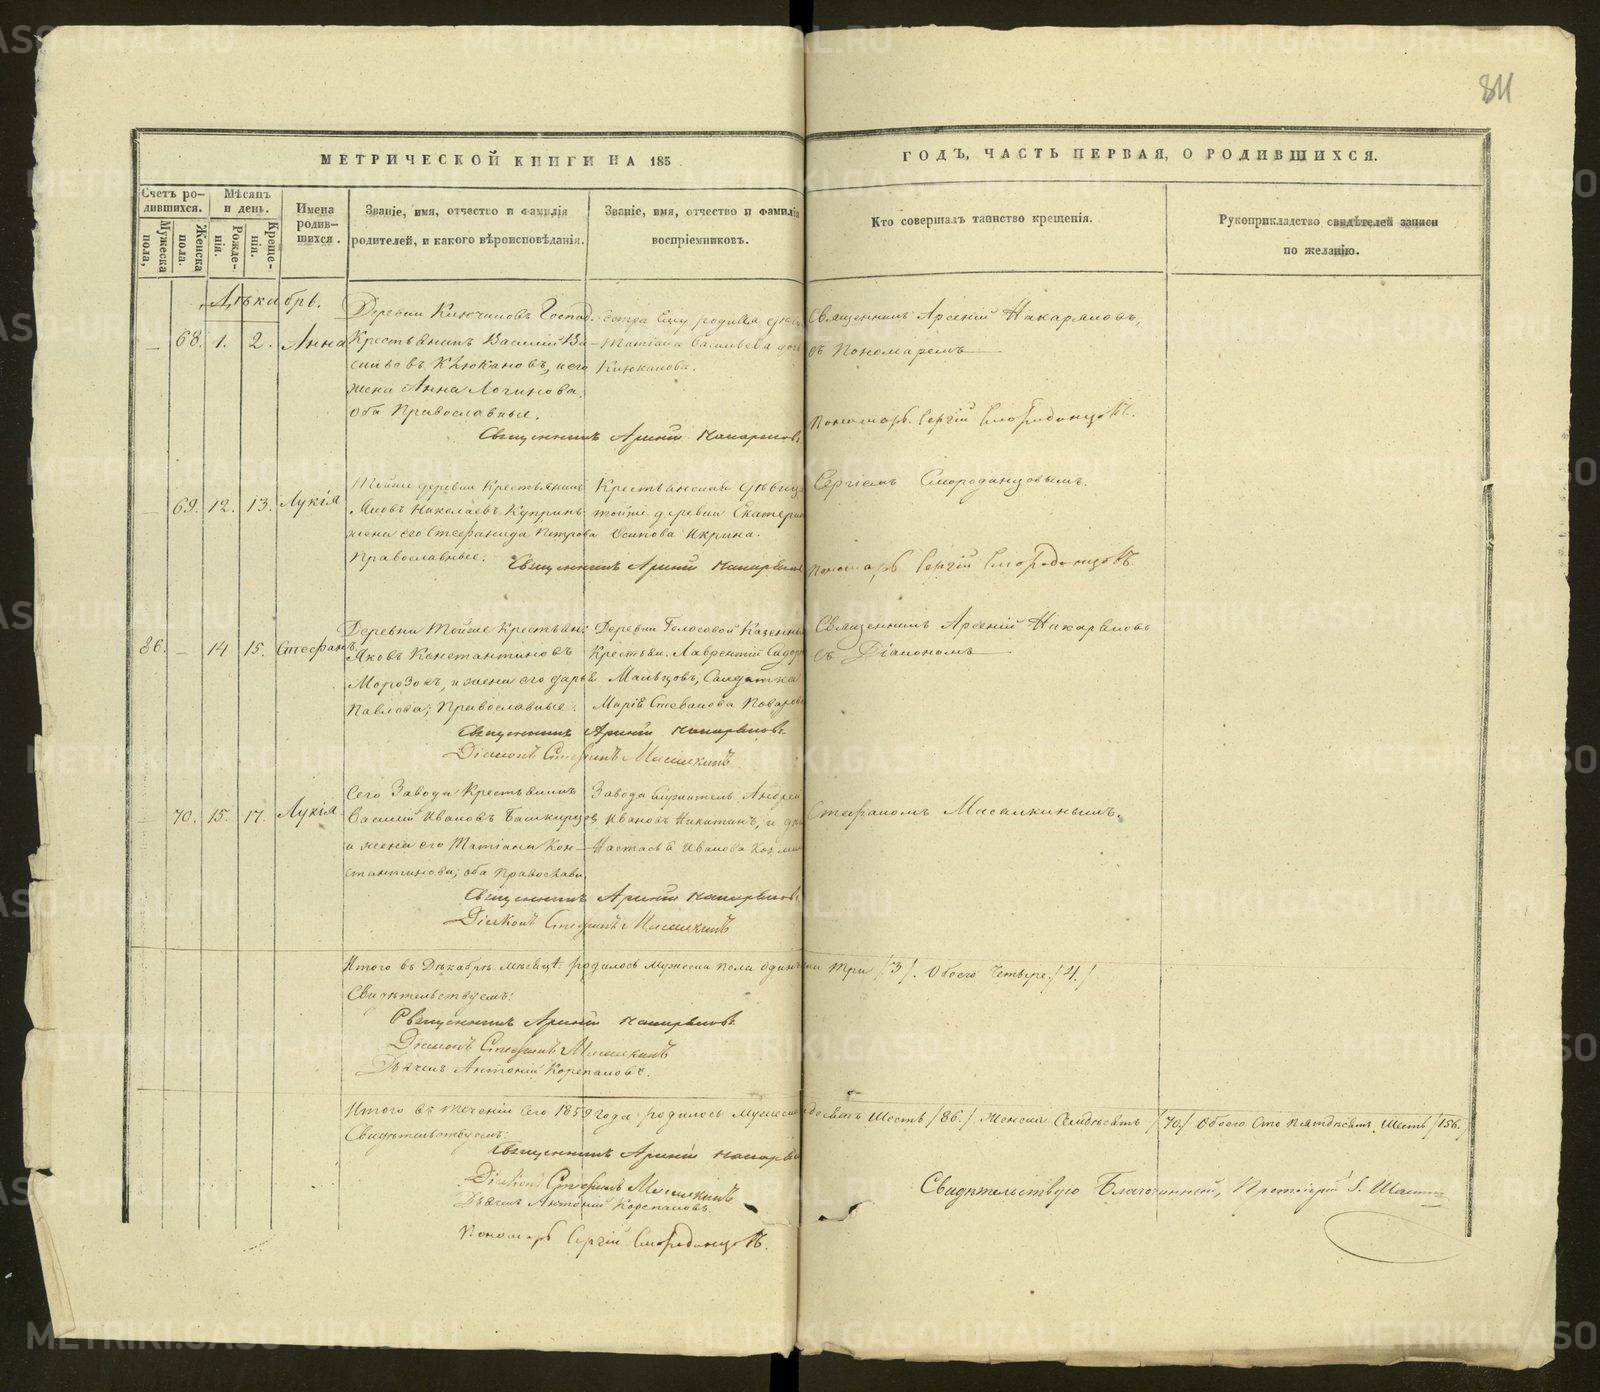 811
МЕТРИЧЕСКОЙ КНИГИ НА 185
ГОДЪ, ЧАСТЬ ПЕРВАЯ, О РОДИВШИХСЯ.
Счетъ ро-
дившихся.
Мужеска пола,
Женска пола.
Мѣсяцъ
и день.
Рожде-
нія.
Креще-
нія.
Имена
родив-
шихся.
Званіе, имя, отчество и фамилія
родителей, и какого вѣроисповѣданія.
Званіе, имя, отчество и фамилія
воспріемниковъ.
Кто совершалъ таинство крещенія.
Рукоприкладство свидѣтелей записи
по желанію.
Декабрь.
68. 1. 2. Анна
Деревни Ключиковъ Господ.
Крестьянинъ Василій Ва-
сильевъ Клюкановъ, и его
жена Анна Логинова,
оба Православные.
сестра ему родная
Татіана Васильева
Клюканова.
Священникъ Арсеній
съ Пономаремъ
Священникъ Арсеній
Пономарь Сергій Смородинцовъ.
69. 12. 13. Лукія
Тойже деревни Крестьянинъ
Яковъ Николаевъ Купринъ
жена его Стефанида Петрова
Православные.
Крестьянская дѣвица
тойже деревни Екатерина
Осипова Икрина.
Сергіемъ Смородинцовымъ.
Священникъ Арсеній
Пономарь Сергій Смородинцовъ.
86. 14 15. Стефанъ
Деревни Тойже Крестьян:
Яковъ Константиновъ
Морозовъ, и жена его Дарья
Павлова; Православные.
Деревни Голосовой Казенный
Крестьян. Лаврентій Сидоро
Мальцовъ, Солдатка
Марія Стефанова
Священникъ Арсеній
съ Діакономъ
Священникъ Арсеній
Діаконъ Стефанъ Масалкинъ
70. 15. 17. Лукія
Сего Завода Крестьянинъ
Василій Ивановъ Башкирцов
и жена его Татіана Кон-
стантинова; оба Православн.
Завода служитель Андрей
Ивановъ Никитинъ, и
Настасья Иванова
Стефаномъ Масалкинымъ.
Священникъ Арсеній
Діаконъ Стефанъ Масалкинъ
Итого въ Декабрѣ мѣсяцѣ родилось Мужеска пола одинъ три /3/. Обоего Четыре /4./
Свидѣтельствуемъ:
Священникъ Арсеній
Діаконъ Стефанъ Масалкинъ
Дьячекъ Антоній Корепановъ.
Итого въ теченіи сего 1859 года родилось Мужеска шесть /86./ Женска Семдесятъ /70./ Обоего Сто пятдесятъ шесть /156./
Свидѣтельствуемъ:
Священникъ Арсеній
Діаконъ Стефанъ Масалкинъ
Дьячекъ Антоній Корепановъ.
Пономарь Сергій Смородинцовъ.
Свидѣтельствую Благочинный, Протоіерей
METRIKI.GASO-URAL.RU